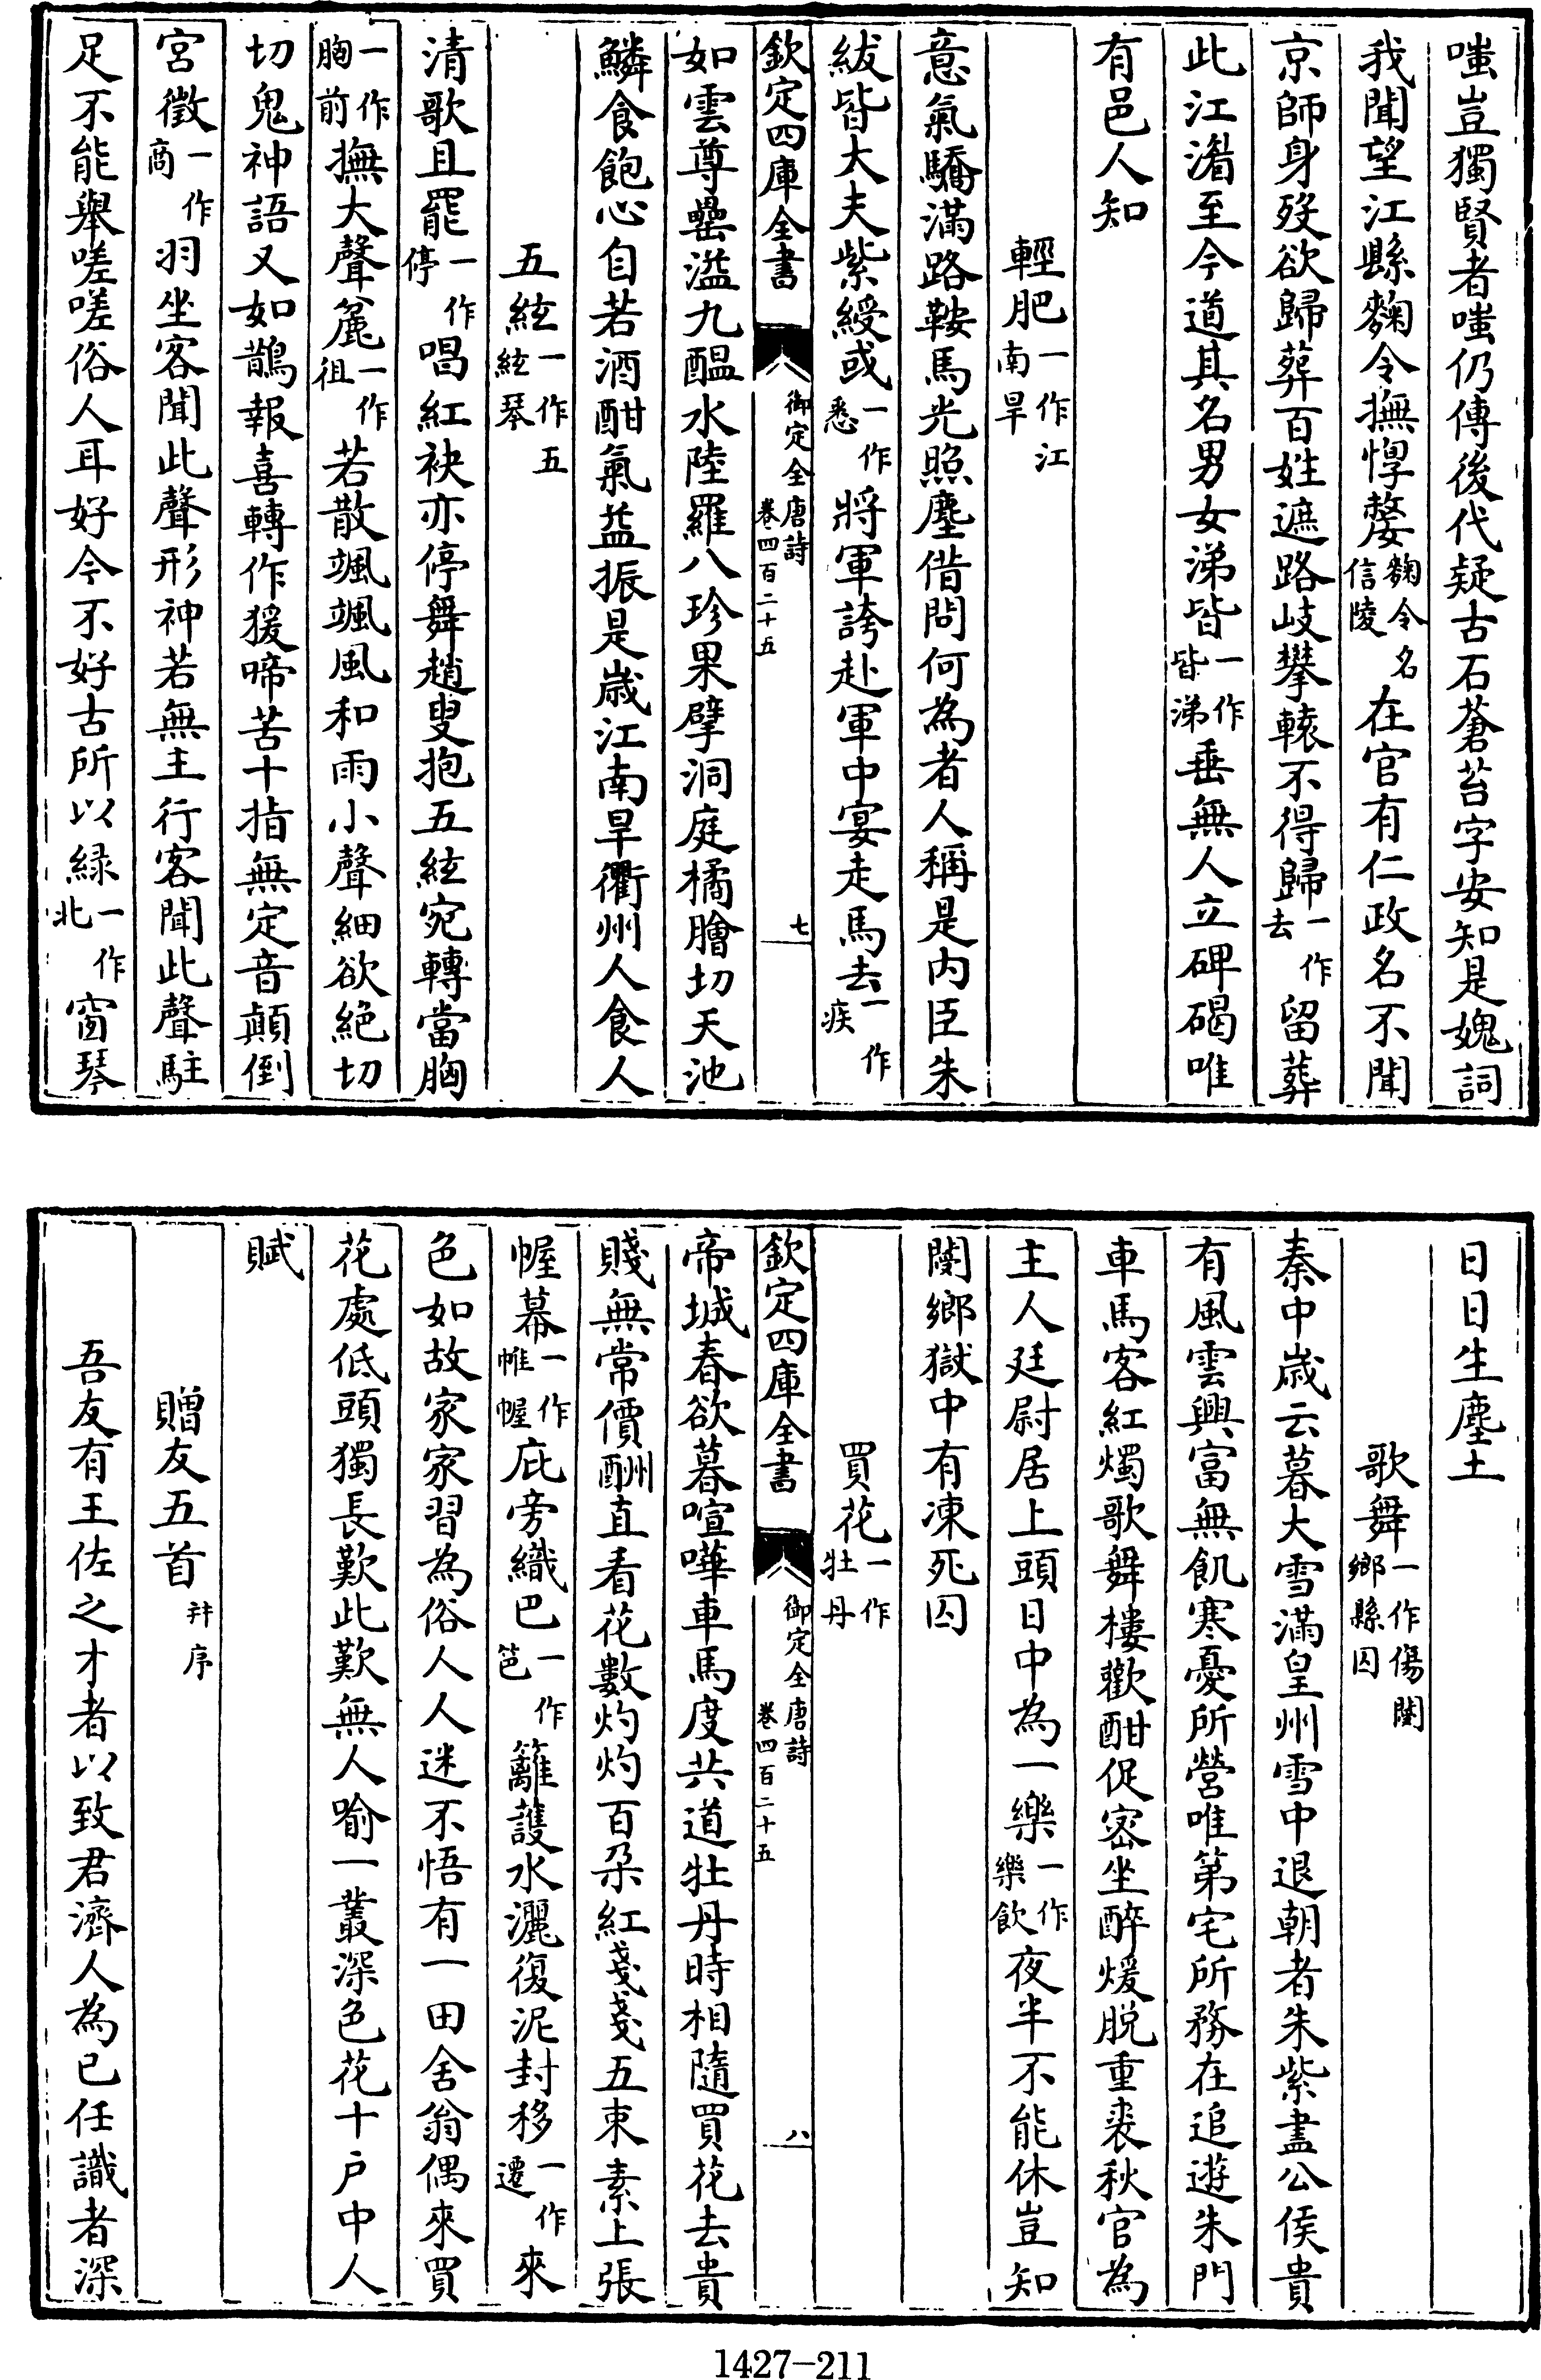 嗤豈獨賢者嗤仍傳後代疑古石蒼苔字安知是媿詞
我聞望江縣麴令撫惸嫠麴令名信陵在官有仁政名不聞
京師身歿欲歸葬百姓遮路岐攀轅不得歸一作去留葬
此江湄至今道其名男女涕皆一作皆涕垂無人立碑碣唯
有邑人知
輕肥一作江南旱
意氣驕滿路鞍馬光照塵借問何為者人稱是内臣朱
紱皆大夫紫綬或一作悉將軍誇赴軍中宴走馬去一作疾
欽定四庫全書
御定全唐詩
卷四百二十五
七
如雲尊罍溢九醖水陸羅八珍果擘洞庭橘膾切天池
鱗食飽心自若酒酣氣益振是歳江南旱衢州人食人
五絃一作五絃琴
清歌且罷一作停唱紅袂亦停舞趙叟抱五絃宛轉當胸
一作胸前撫大聲麄一作徂若散颯颯風和雨小聲細欲絶切
切鬼神語又如鵲報喜轉作猨啼苦十指無定音顛倒
宮徵一作商羽坐客聞此聲形神若無主行客聞此聲駐
足不能舉嗟嗟俗人耳好今不好古所以緑一作北窗琴
日日生塵土
歌舞一作傷閿鄉縣囚
秦中歳云暮大雪滿皇州雪中退朝者朱紫盡公侯貴
有風雲興富無飢寒憂所營唯第宅所務在追遊朱門
車馬客紅燭歌舞樓歡酣促密坐醉煖脱重裘秋官為
主人廷尉居上頭日中為一樂一作樂飲夜半不能休豈知
閿鄉獄中有凍死囚
買花一作牡丹
欽定四庫全書
御定全唐詩
卷四百二十五
八
帝城春欲暮喧嘩車馬度共道牡丹時相隨買花去貴
賤無常價酬直看花數灼灼百朶紅戔戔五束素上張
幄幕一作帷幄庇旁織巴一作笆籬護水灑復泥封移一作遷來
色如故家家習為俗人人迷不悟有一田舍翁偶來買
花處低頭獨長歎此歎無人喻一叢深色花十戶中人
賦
贈友五首并序
吾友有王佐之才者以致君濟人為已任識者深
1427-211